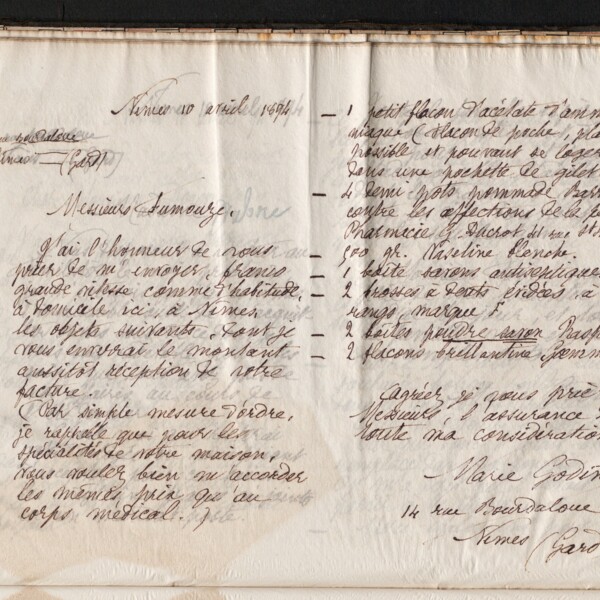 Nîmes 10 avril 1894
Bourdaloue
Nîmes (Gard)
Messieurs Fumouze,
J'ai l'honneur de vous
prier de m'envoyer, franco
grande vitesse comme d'habitude,
à domicile ici, à Nîmes
les objets suivants, dont je
vous enverrai le montant
aussitôt réception de votre
facture.
(Par simple mesure d'ordre,
je rappelle que pour les
spécialités de votre maison,
vous voulez bien m'accorder
les mêmes prix qu'au
corps médical.)
— 1 petit flacon d'acétate d'amm
niaque (flacon de poche, pla
possible et pouvant se loger
dans une pochette de gilet
— 4 demi pots pommade
contre les affections de la pe
Pharmacie Ducrot
— 500 gr. Vaseline blanche.
— 1 boîte savons antiseptiques
— 2 brosses à dents à
rangs, marque F.
— 2 boîtes poudre savon
— 2 flacons brillantine
Agréez, je vous prie
Messieurs l'assurance
toute ma considération
Marie Godin
14 rue Bourdaloue
Nîmes (Gard